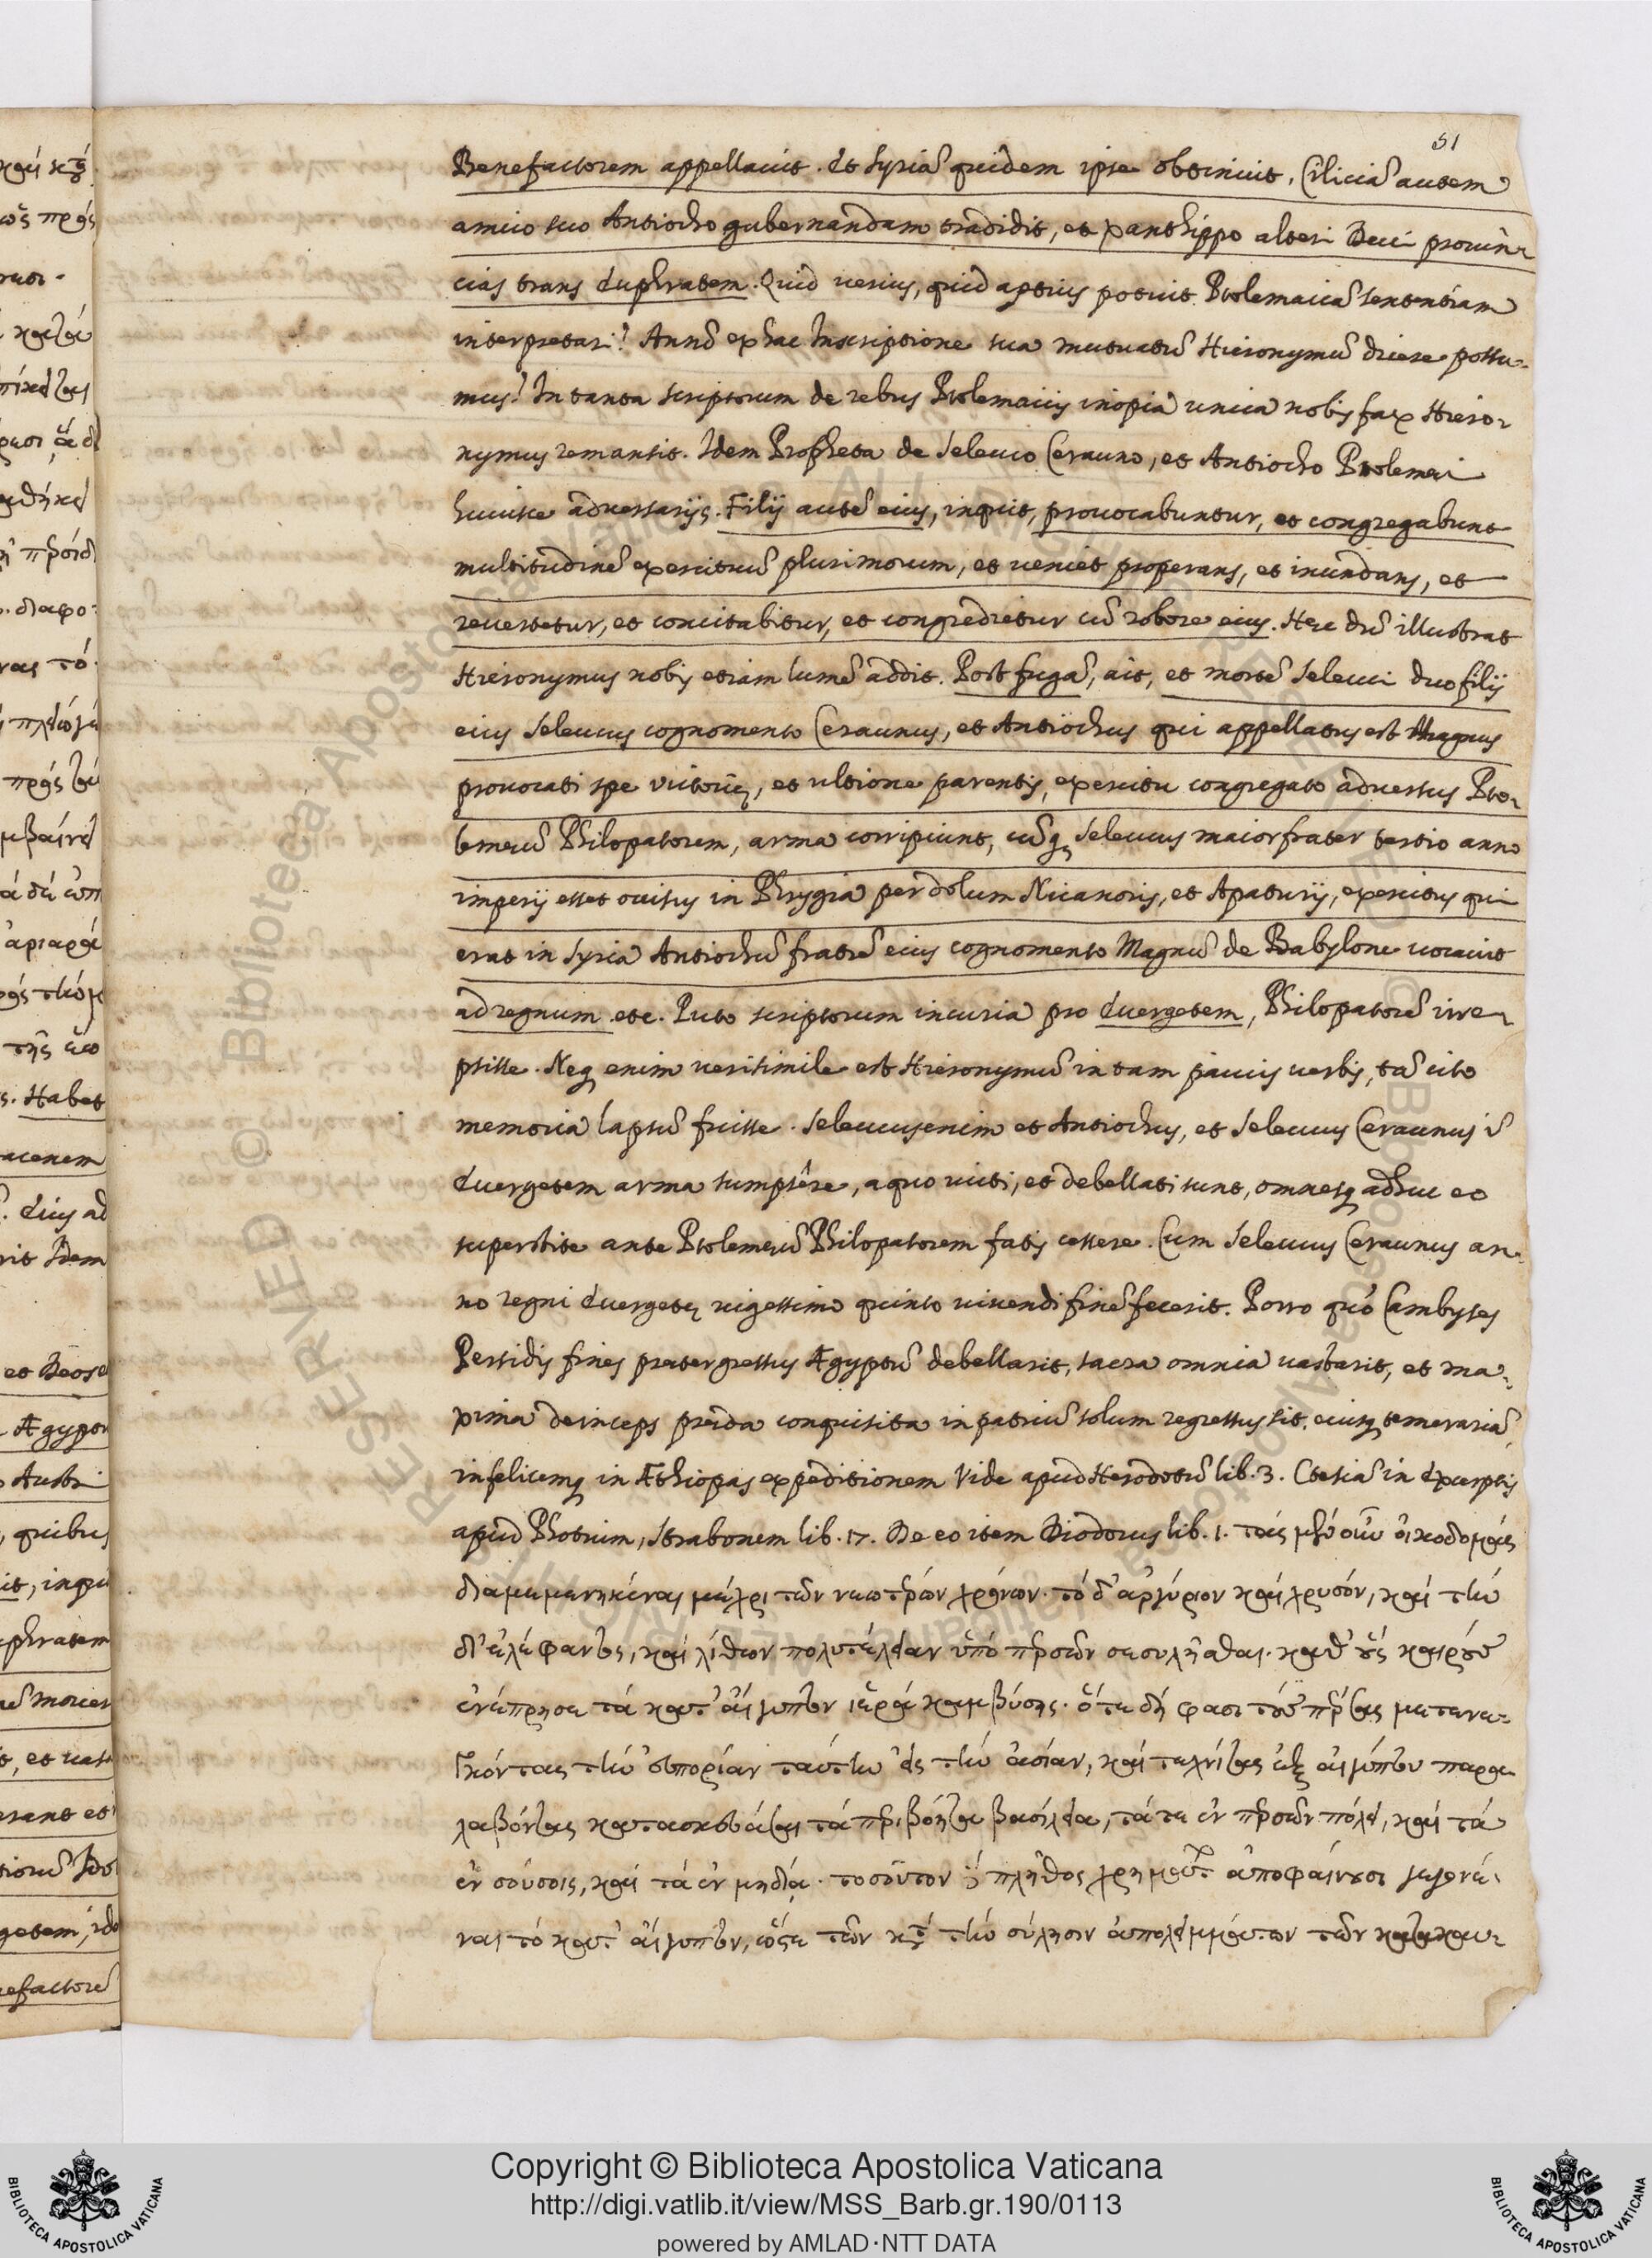 51
Benefactorem appellauit. Et Syriā quidem ipse obtinuit, Ciliciā autem
amico suo Antiocho gubernandam tradidit, et Xanthippo alteri Duci prouin-
cias trans Euphratem. Quid uerius, quid aptius potuit Ptolemaicā sententiam
interpretari? Annō ex hac Inscriptione sua mutuatū Hieronymū dicere possu-
mus? In tanta scriptorum de rebus Ptolemaicis inopia unica nobis fax Hiero-
nymus remansit. Idem Propheta de Seleuco Cerauno, et Antiocho Ptolemei
huiusce aduersarijs. Filij autē eius, inquit, prouocabuntur, et congregabunt
multitudinē exercituū plurimorum, et ueniet properans, et inundans, et
reuertetur, et concitabitur, et congredietur cū robore eius. Hec dū illustrat
Hieronymus nobis etiam lumē addit. Post fugā, ait, et mortē Seleuci duo filij
eius Seleucus cognomento Ceraunus, et Antiochus qui appellatus est Magnus
prouocati spe uictorię, et ultione parentis, exercitu congregato aduersus Pto-
lemeū Philopatorem, arma corripiunt, cūq; Seleucus maior frater tertio anno
imperij esset occisus in Phrygia per dolum Nicanoris, et Apaturij, exercitus qui
erat in Syria Antiochū fratrē eius cognomento Magnū de Babylone uocauit
ad regnum etc. Puto scriptorum incuria pro Euergetem, Philopatorē irre-
psisse. Neq; enim uerisimile est Hieronymū in tam paucis uerbis, tā cito
memoria lapsū fuisse. Seleucus enim et Antiochus, et Seleucus Ceraunus ī
Euergetem arma sumpsēre, a quo uicti, et debellati sunt, omnesq; adhuc eo
superstite ante Ptolemęū Philopatorem fatis cessere. Cum Seleucus Ceraunus an-
no regni Euergetę uigessimo quinto uiuendi finē fecerit. Porro quō Cambyses
Persidis fines pretergressus Ægyptū debellarit, sacra omnia uastarit, et ma-
xima deinceps preda conquisita in patriū solum regressus sit, eiusq; temerariā
infelicemq; in Æthiopas expeditionem Vide apud Herodotū lib. 3. Ctesiā in Excerptis
apud Photium, Strabonem lib. 17. De eo item Diodorus lib. 1. τὰς μὲν οὖν οἰκοδομὰς
διαμεμενηκέναι μέχρι τῶν νεωτέρων χρόνων. τὸ δ' ἀργύριον καὶ χρυσόν, καὶ τὴν
δι' ἐλέφαντος, καὶ λίθων πολυτέλειαν ὑπὸ περσῶν σεσυλῆσθαι. καθ' οὓς καιροὺς
ἐνέπρησε τὰ κατ' αἴγυπτον ἱερὰ καμβύσης. ὅτε δή φασι τοὺς πέρσας μετενε-
γκόντας τὴν εὐπορίαν ταύτην εἰς τὴν ἀσίαν, καὶ τεχνίτας ἐξ αἰγύπτου παρα
λαβόντας κατασκευάσαι τὰ περιβόητα βασίλεια, τά τε ἐν περσῶν πόλει, καὶ τὰ
ἐν σούσοις, καὶ τὰ ἐν μηδίᾳ. τοσοῦτον δὲ πλῆθος χρημάτων ἀποφαίνουσι γεγονέ-
ναι τὸ κατ' αἴγυπτον, ὥστε τῶν κατὰ τὴν σύλησιν ἀπολειμμάτων τῶν κατακαυ-
Copyright © Biblioteca Apostolica Vaticana
http://digi.vatlib.it/view/MSS_Barb.gr.190/0113
powered by AMLAD·NTT DATA
BIBLIOTECA APOSTOLICA VATICANA
BIBLIOTECA APOSTOLICA VATICANA